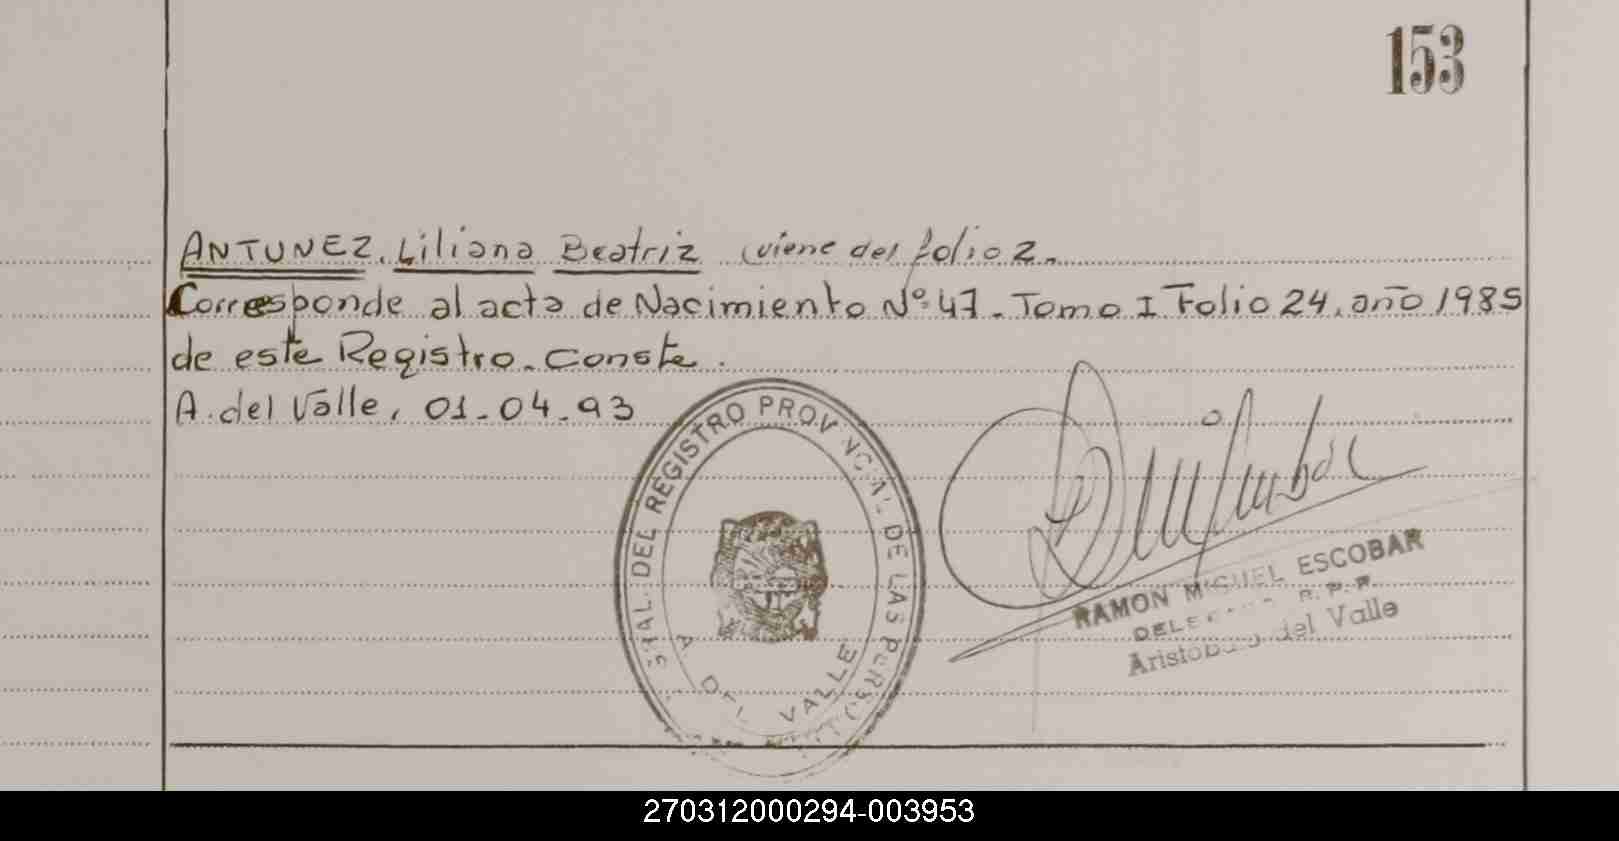 153
ANTUNEZ, Liliana Beatriz (viene del folio 2.
Corresponde al acta de Nacimiento Nº 47. Tomo I Folio 24, año 1985
de este Registro. Conste.
A. del Valle, 01-04-93
DEL REGISTRO PROVINCIAL DE LAS PERSO
A DEL VALLE
RAMON MIGUEL ESCOBAR
R.P.P.
Aristobulo del Valle
270312000294-003953